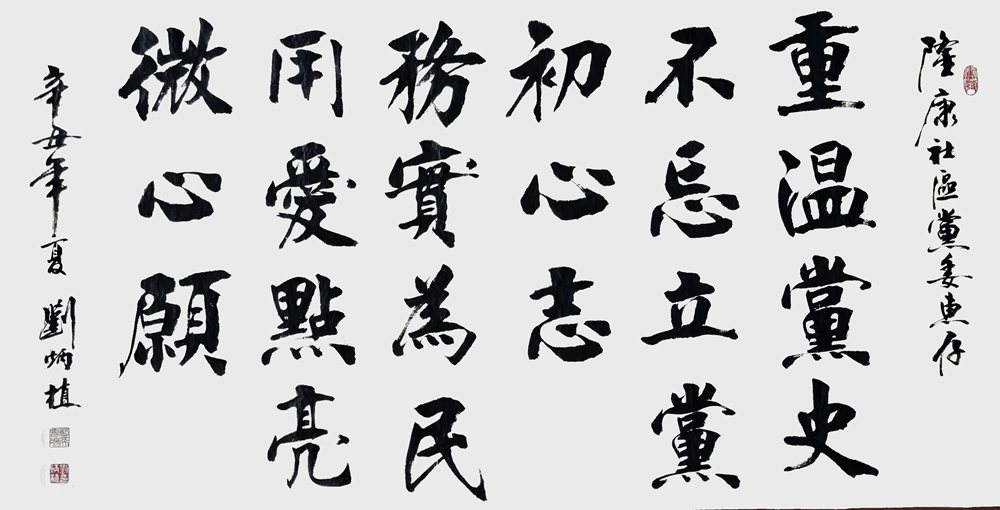 隆康社區黨委惠存
重温黨史
不忘立黨
初心志
務實為民
用愛點亮
微心願
辛丑年夏 劉炳植